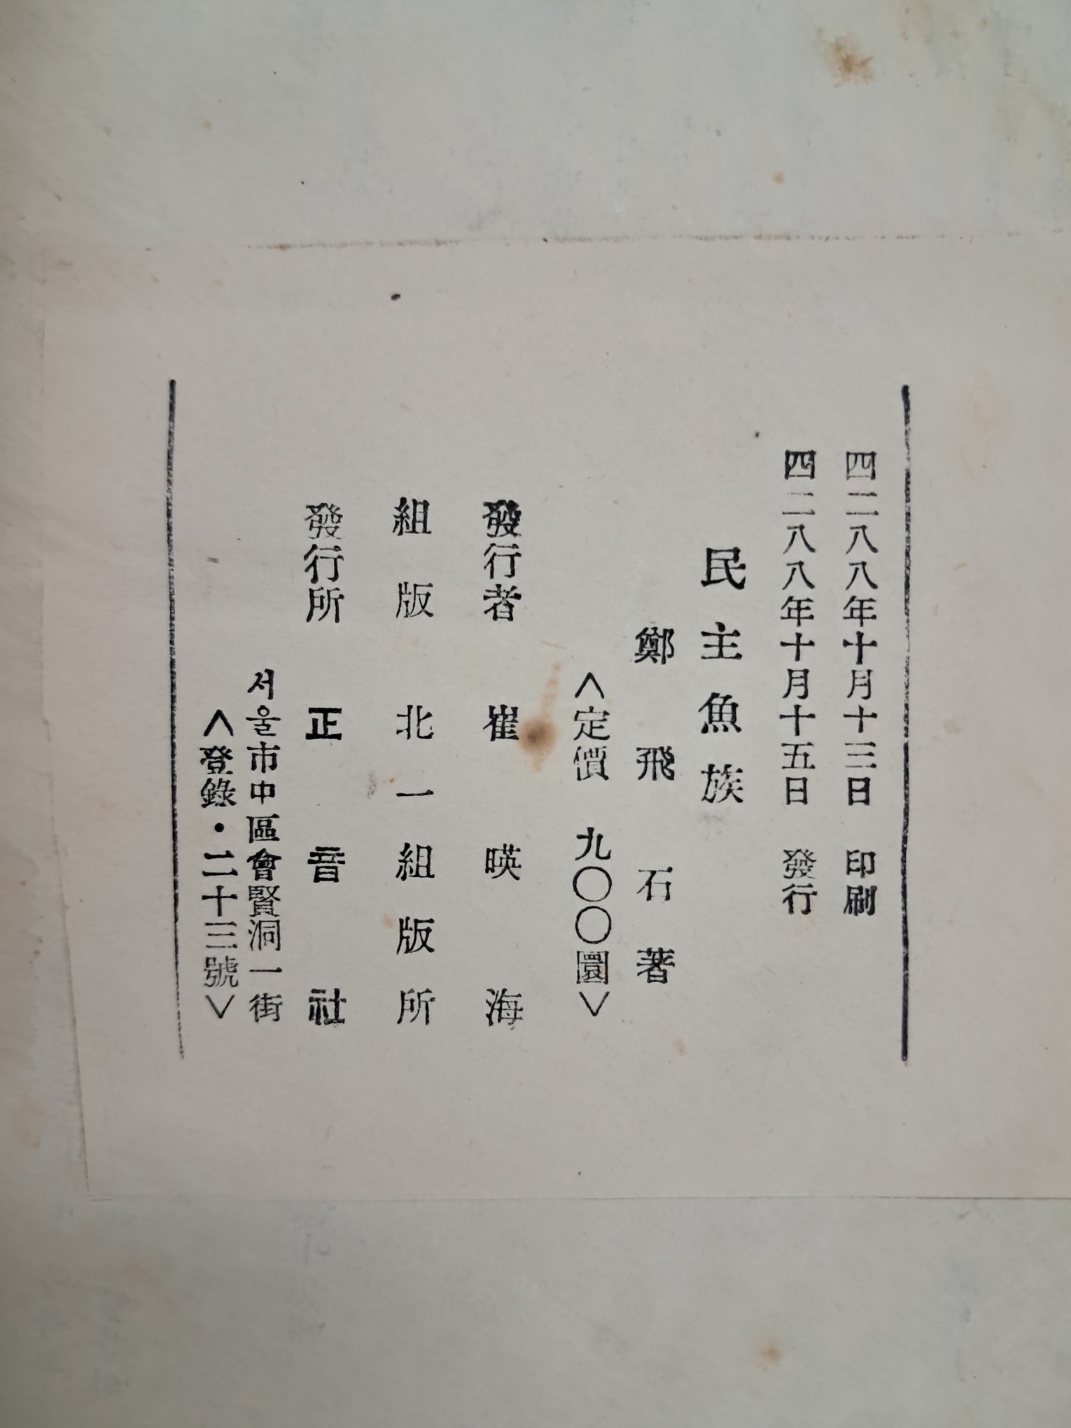 四二八八年十月十三日 印刷
四二八八年十月十五日 發行
民主魚族
鄭飛石著
<定價 九〇〇圜>
發行者 崔暎海
組版 北一組版所
發行所 正音社
서울市中區會賢洞一街
<登錄・二十三號>